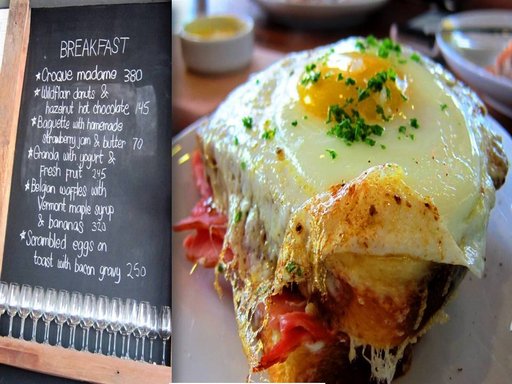 BREAKFAST
★Croque madame 380
★Wildflour donuts &
hazelnut hot chocolate 145
★Baguette with homemade
strawberry jam & butter 70
★Granola with yogurt &
Fresh fruit 245
★Belgian waffles with
Vermont maple syrup
& bananas 320
★Scrambled eggs on
toast with bacon gravy 250